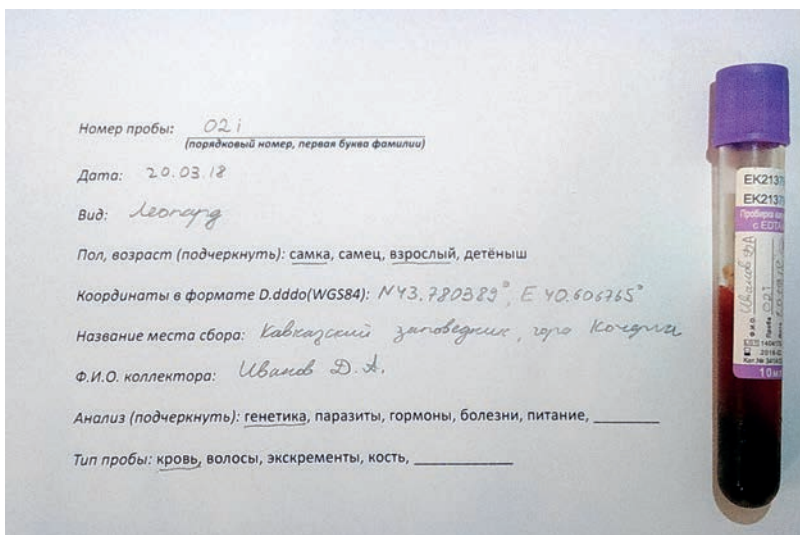 Номер пробы: 02i
(порядковый номер, первая буква фамилии)
Дата: 20.03.18
Вид: Леопард
Пол, возраст (подчеркнуть): самка, самец, взрослый, детёныш
Координаты в формате D.dddo(WGS84): N43.780389°, E 40.606765°
Название места сбора: Кавказский заповедник, гора
Ф.И.О. коллектора: Иванов Д.А.
Анализ (подчеркнуть): генетика, паразиты, гормоны, болезни, питание, ________
Тип пробы: кровь, волосы, экскременты, кость, ____________
EK2137
EK2137
Пробирка
с EDTA
Ф.И.О. Иванов ДА
Проба 021
10мл